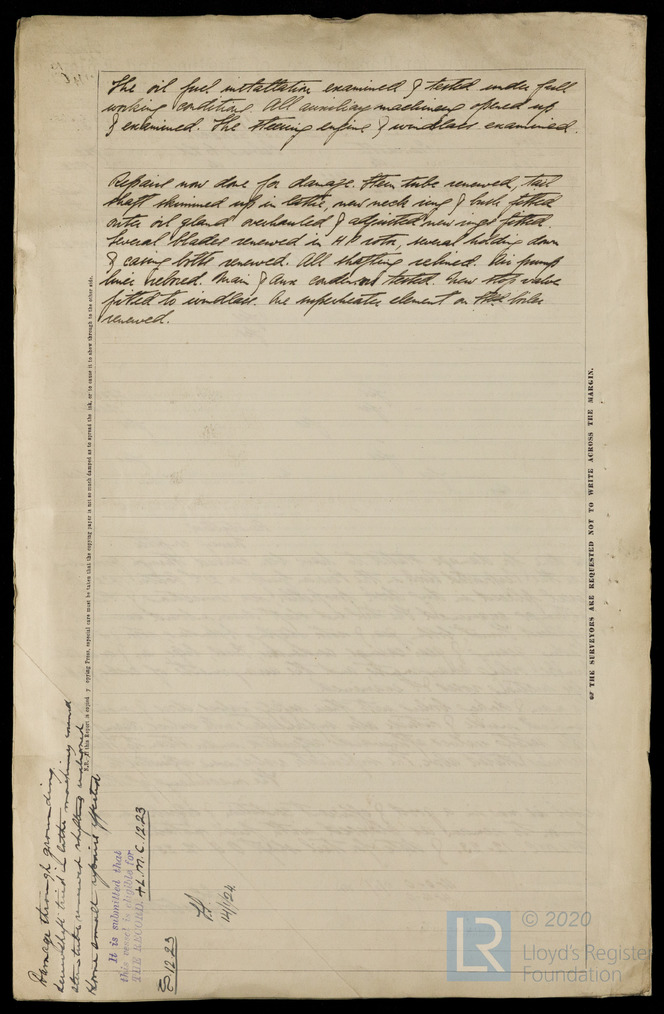 The oil fuel installation examined & tested under full
working conditions. All auxiliary machinery opened up
& examined. The steering engine & windlass examined.
Repairs now done for damage. Stern tube renewed, tail
shaft skimmed up in lathe, new neck ring & bush fitted
outer oil gland overhauled & adjusted new rings fitted.
Several blades renewed in H.P. rotor, several holding down
& casing bolts renewed. All shafting relined. Air pump
liner rebored. Main & aux condensers tested. New stop valve
fitted to windlass. One superheater element on boiler
renewed.
N.B.—If this Report is copied by Copying Press, especial care must be taken that the copying paper is not so much damped as to spread the ink, or to cause it to show through to the other side.
THE SURVEYORS ARE REQUESTED NOT TO WRITE ACROSS THE MARGIN.
Damage through grounding
Screwshaft tried in lathe machinery
sterntube renewed shafting realigned
& some small repairs effected
It is submitted that
this vessel is eligible for
THE RECORD. + L.M.C. 12.23
S 12.23
14/1/24
LR
© 2020
Lloyd's Register
Foundation